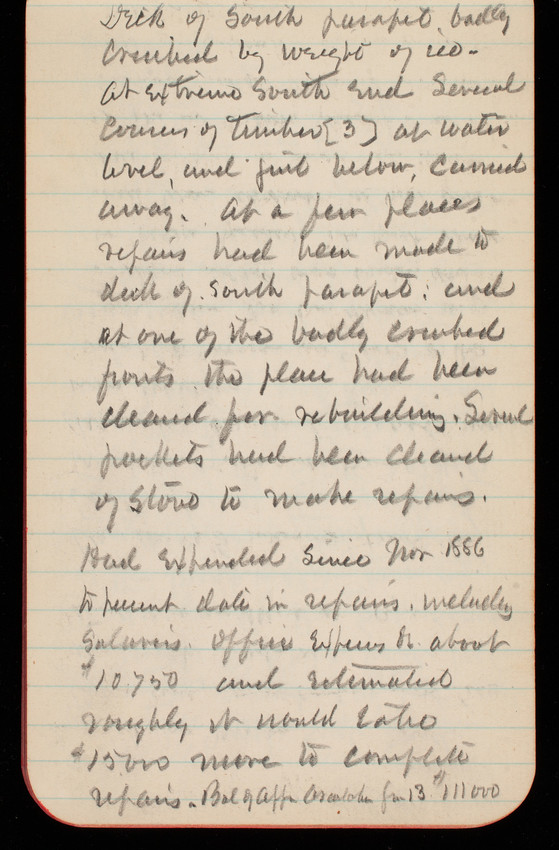 Deck of South parapet badly
crushed by weight of ice -
at Extreme South End Several
courses of timber [3] at water
level, and just below, carried
away. At a few places
repairs had been made to
deck of South parapet; and
at one of the badly crushed
points the place had been
cleared for rebuilding. Several
pockets had been cleared
of Stone to make repairs.
Had Expended Since Nov 1886
to present date in repairs, including
Salaries Office Expenses &c about
$10.750 and estimated
roughly it would take
$15000 more to complete
repairs. Bal of App. available 13 $111000